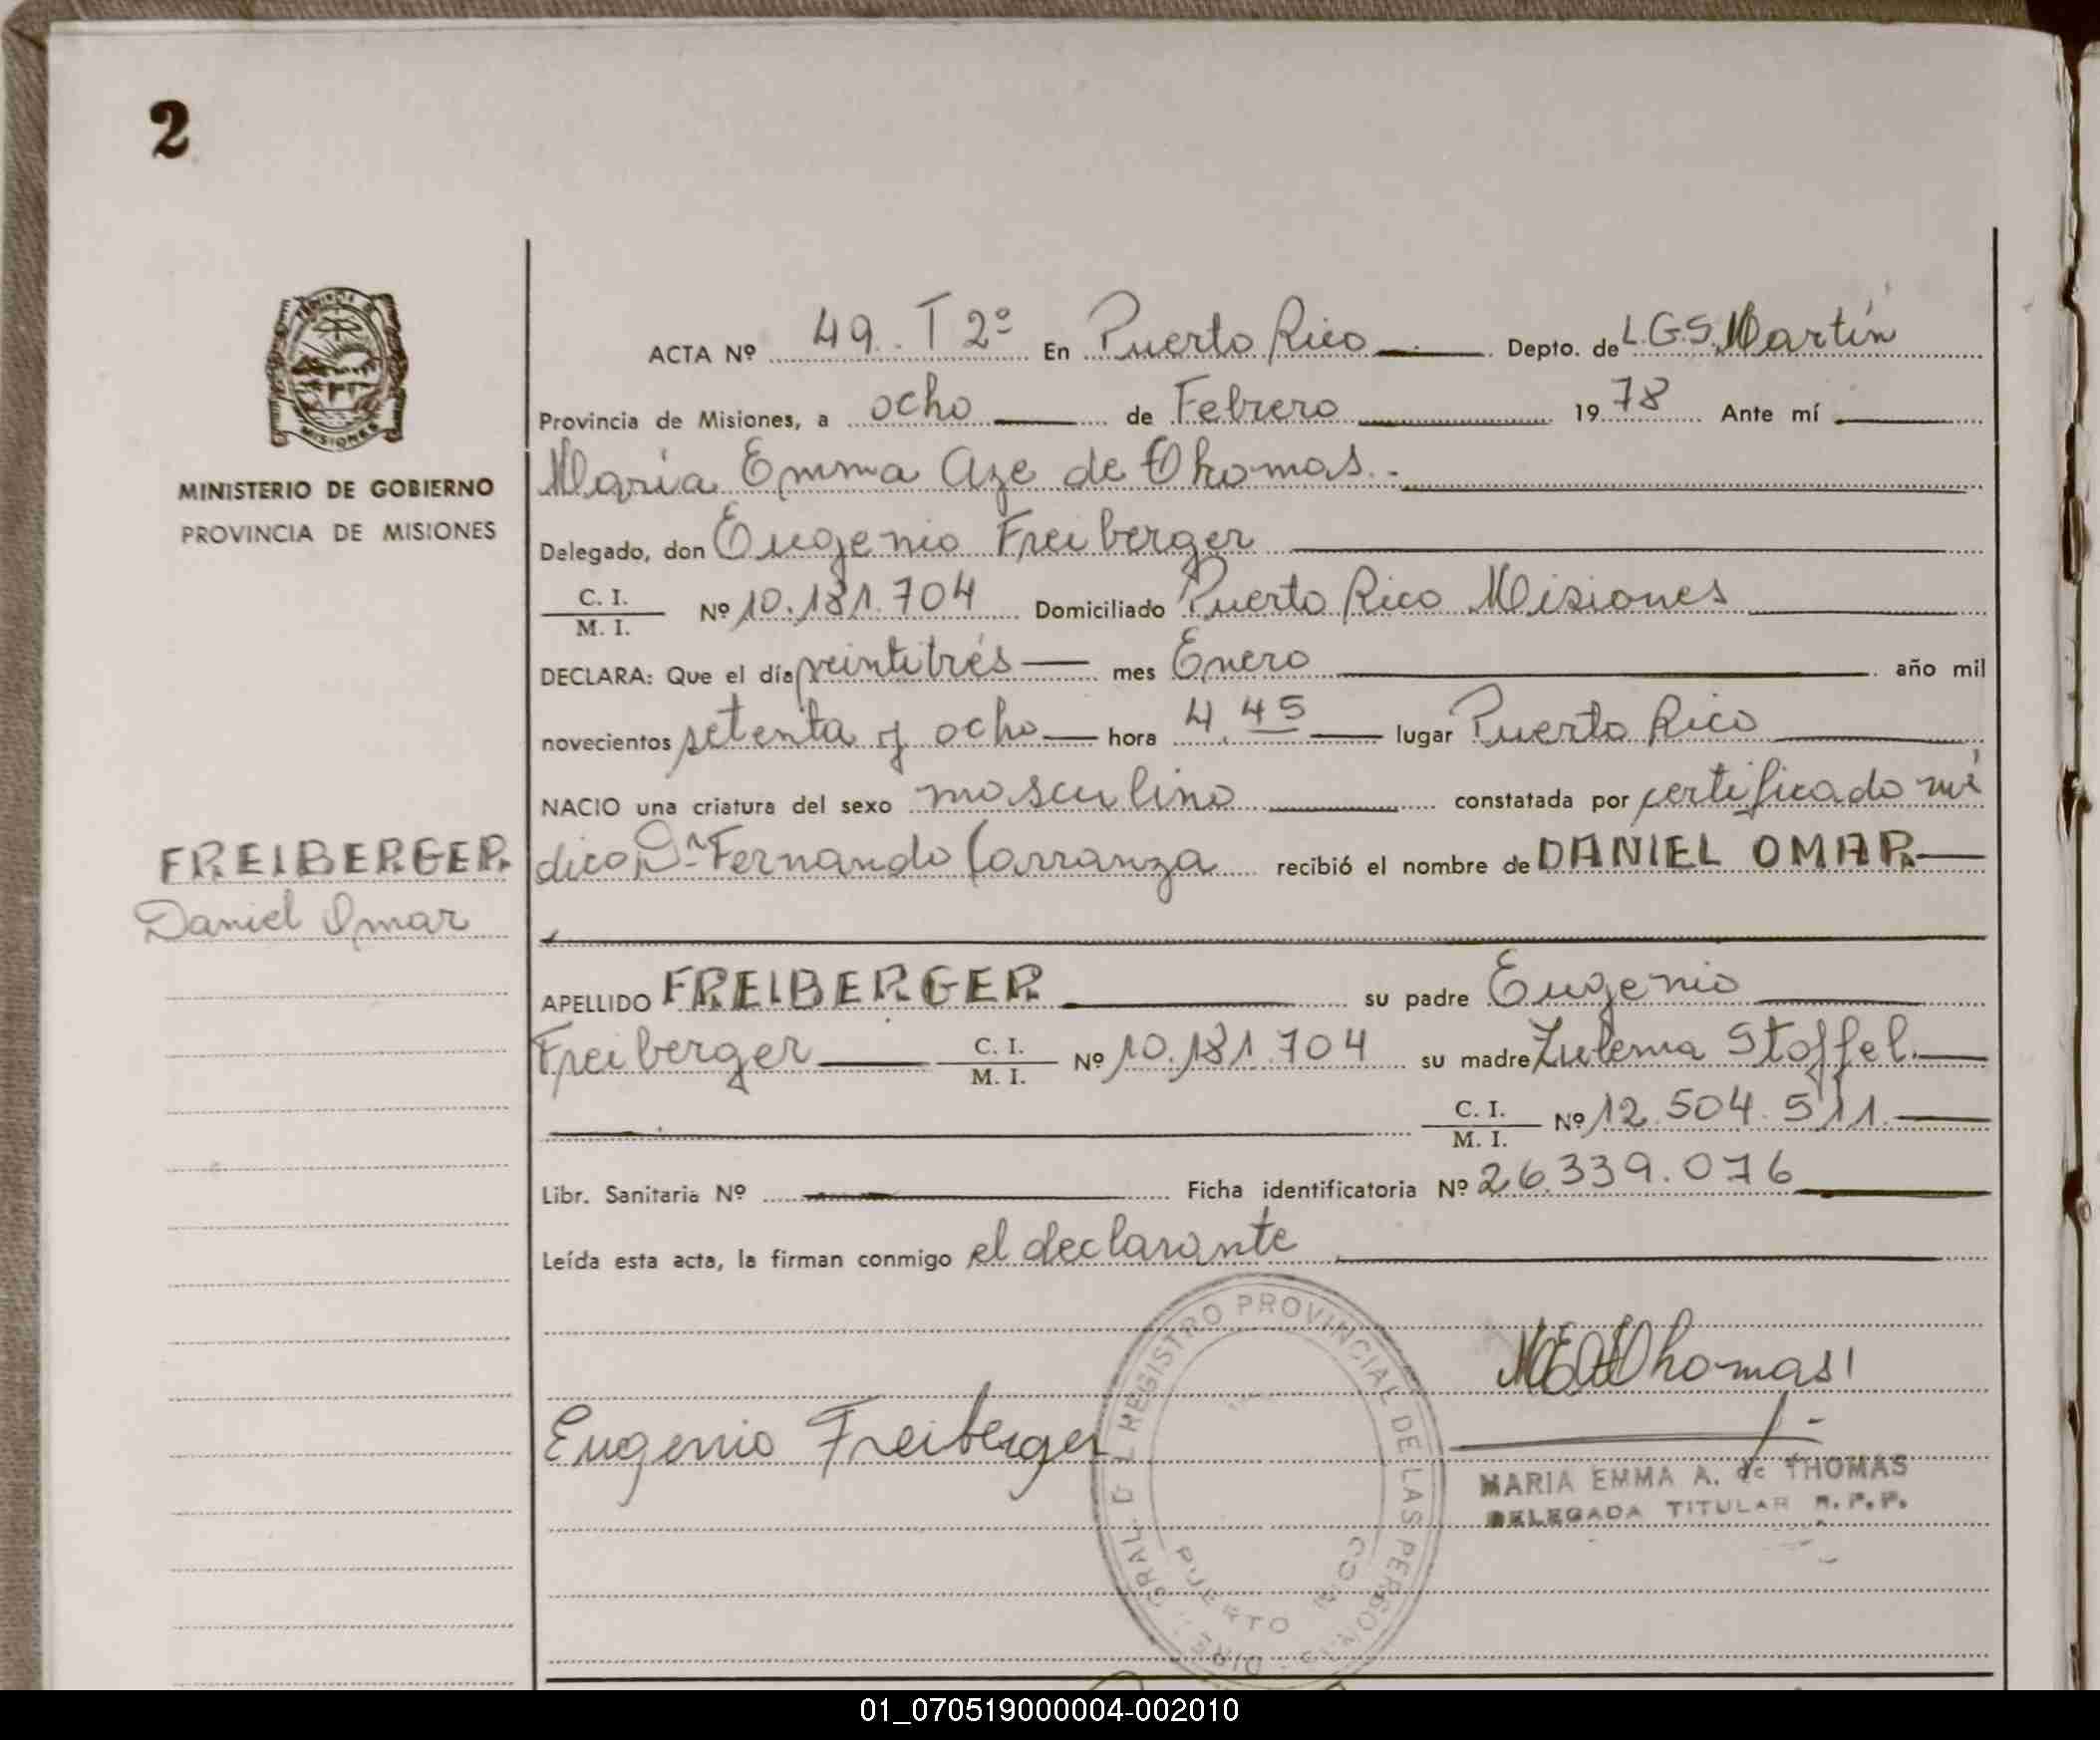 2
PROVINCIA DE
MISIONES
MINISTERIO DE GOBIERNO
PROVINCIA DE MISIONES
FREIBERGER
Daniel Omar
ACTA Nº 49. T 2º En Puerto Rico Depto. de L.G.S. Martín
Provincia de Misiones, a ocho de Febrero 1978 Ante mí
María Emma Aze de Thomas.
Delegado, don Eugenio Freiberger
C. I. / M. I. Nº 10.181.704 Domiciliado Puerto Rico Misiones
DECLARA: Que el día veintitrés mes Enero año mil
novecientos setenta y ocho hora 4.45 lugar Puerto Rico
NACIO una criatura del sexo masculino constatada por certificado mé
dico Dr Fernando Carranza recibió el nombre de DANIEL OMAR
APELLIDO FREIBERGER su padre Eugenio
Freiberger C. I. / M. I. Nº 10.181.704 su madre Zulema Stoffel.
C. I. / M. I. Nº 12.504.511.
Libr. Sanitaria Nº Ficha identificatoria Nº 26.339.076
Leída esta acta, la firman conmigo el declarante
MEAThomas
Eugenio Freiberger
MARIA EMMA A. de THOMAS
DELEGADA TITULAR R. P. P.
DIREC. GRAL. DEL REGISTRO PROVINCIAL DE LAS PERSONAS
PUERTO RICO
01_070519000004-002010